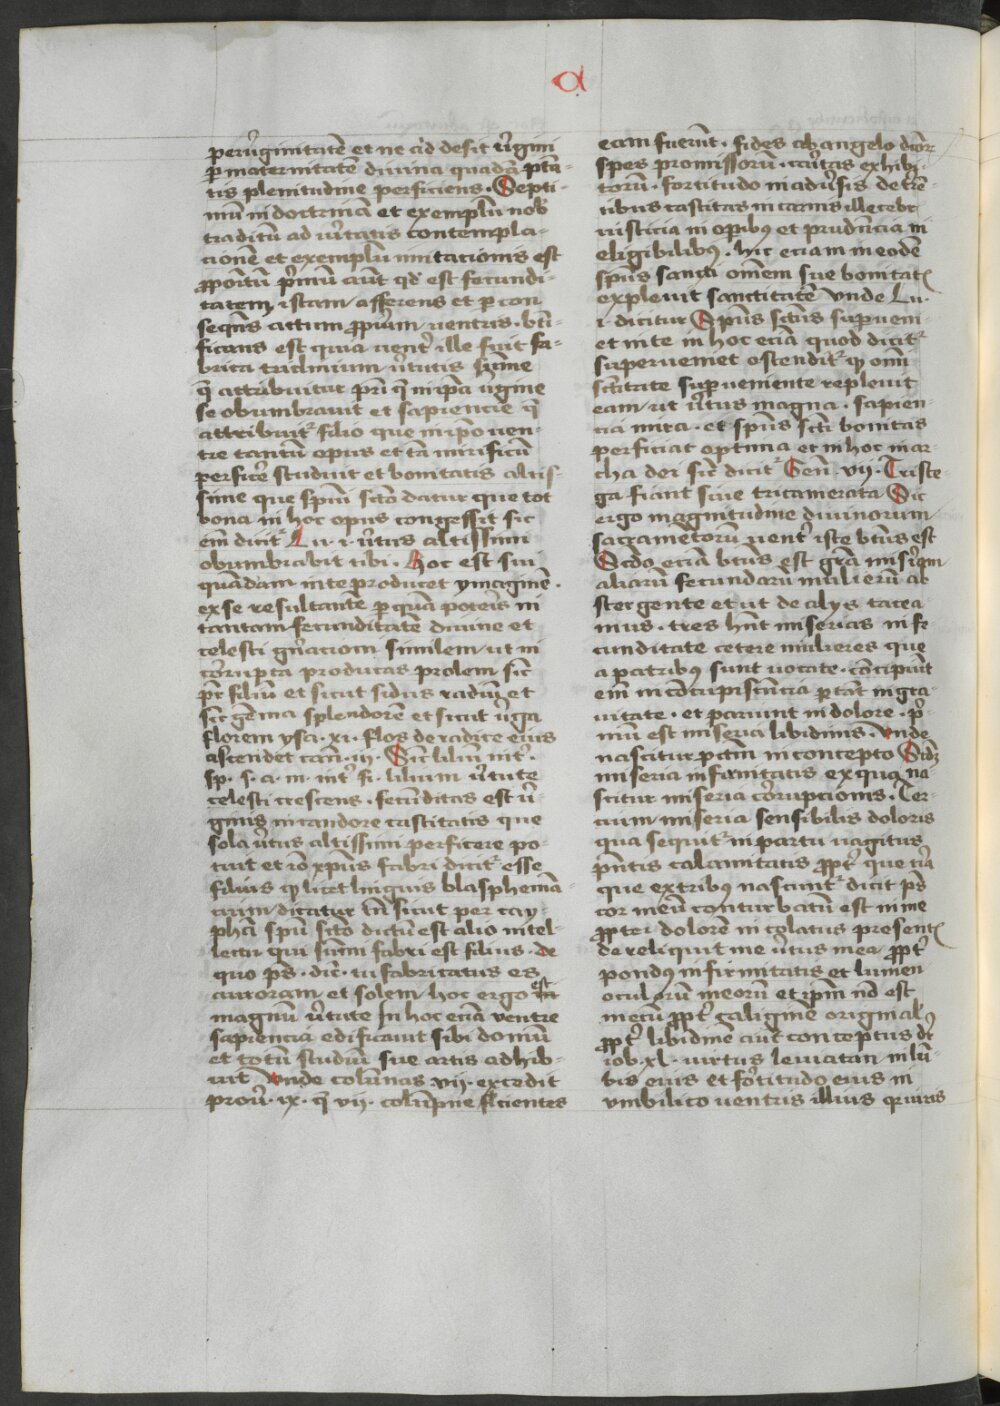 a
per v̄ginitatē et ne qd desit v̄gini
ꝑ maternitatē diuina quadā ptā-
tis plenitudine perficiens. Septi-
mū in doctrinā et exemplū nob̄
traditū ad v̄itatis contempla-
cionē et exemplū imitacionis est
ꝓpositū p̄mū aūt qd̄ est fecundi-
tatem istam afferens et ꝑ con
seqn̄s actum ꝓpriū ventris. bti-
ficans est quia vent̄ ille fuit fa-
brica trid̄nium v̄tutis sūme
q̄ attribuitur pri q̄ in ip̄a v̄gine
se obumbrauit et sapiencie q̄
attribuit̄ filio que in ip̄o ven-
tre tantū opus et tā mirificū
perficē studuit et bonitatis altis-
sime que spūi scto datur que tot
bona in hoc opus congessit sic
em̄ dicit̄ Lu. i. v̄tus altissimi
obumbrabit tibi. hoc est sui
quādam in te producet ymaginē.
ex se resultantē ꝑ quā poteris in
tantam fecunditatē diuine et
celesti gn̄aciom similem ut in
cōrupta producas prolem sic̄
pr̄ filiū et sicut sidus radiū et
sic̄ gēma splendorē et sicut v̄ga
florem ysa. xi. flos de radice eius
ascendet can̄. ij. Sic̄ liliū int̄.
sp. s. a. m. int̄ fi. lilium v̄tute
celesti crescens. fecūditas est v̄-
ginis in candore castitatis que
sola v̄tus altissimi perficere po-
tuit et iō xp̄us fabri dicit̄ esse
filius qͥ licet linguis blasphemā-
cium dicatur tn̄ sicut per cay-
phā spū scto dictū est alio intel-
lectu qui sūmi fabri est filius. de
quo ps. dic̄. tu fabricatus es
auroram et solem hoc ergo est
magnū v̄tute In hoc eciā ventre
sapiencia edificauit sibi domū
et totū studiū sue artis adhib-
uit vnde colūnas vij. excedit
prou. ix. q̄ vij. colūpne facientes
eam fuerūt. fides ab angelo dcōr
spes promissorū. caritas exhibi-
torū. fortitudo in adūsis de trē-
tibus castitas in carnis illecebr̄
iusticia in opibꝰ et prudn̄cia in
eligibilibꝰ. hic eciam in eodē
spūs sancti omēm sue bonitatꝭ
expleuit sanctitatē vnde Lu.
i. dicitur Spūs sctūs superueni-
et in te in hoc eciā quod dicit̄
superueniet ostendit̄ qꝫ omni
sctitate superueniente repleuit
eam ut v̄tus magna. sapien-
cia mira. et spūs scti bonitas
perficiat optima et in hoc in ar-
cha dei sic̄ dicit̄ Gen̄. vij. Triste-
ga fiant siue tricamerata Sic
ergo magnitudine diuinorum
sacramētorū vent̄ iste btūs est
Scdo eciā btūs est grā misīam
aliarū fecundarū mulierū ab
stergente et ut de alijs tacea
mus. tres hn̄t miserias in fe
cunditate cetere mulieres que
a patribꝰ sunt vocate. cōcipiūt
em̄ in cōcupiscn̄cia portāt in gra-
uitate. et pariunt in dolore. p̄-
mū est miseria libidinis. vnde
nascitur pctm̄ in concepto Scdꝫ
miseria infirmitatis ex qua na-
scitur miseria corrupcionis. Ter-
cium miseria sensibilis doloris
qua sequit̄ in partu vagitus
pn̄tis calamitatis ꝓpt̄ que tria
que ex tribꝰ nascunt̄ dicit ps
cor meū conturbatū est in me
ꝓpter dolorē in colatus presentꝭ
dereliquit me v̄tus mea ꝓpt̄
pondꝰ infirmitatis et lumen
oculorū meorū et ip̄m nō est
mecū ꝓpt̄ caliginē originalꝰ
ꝓpt̄ libidinē aūt conceptus dr̄
iob. xl. virtus leuiatan in lū-
bis eius et fortitudo eius in
vmbilico ventris illius